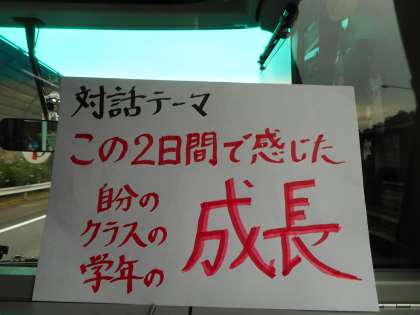 対話テーマ
この2日間で感じた
自分の
クラスの
学年の
成長